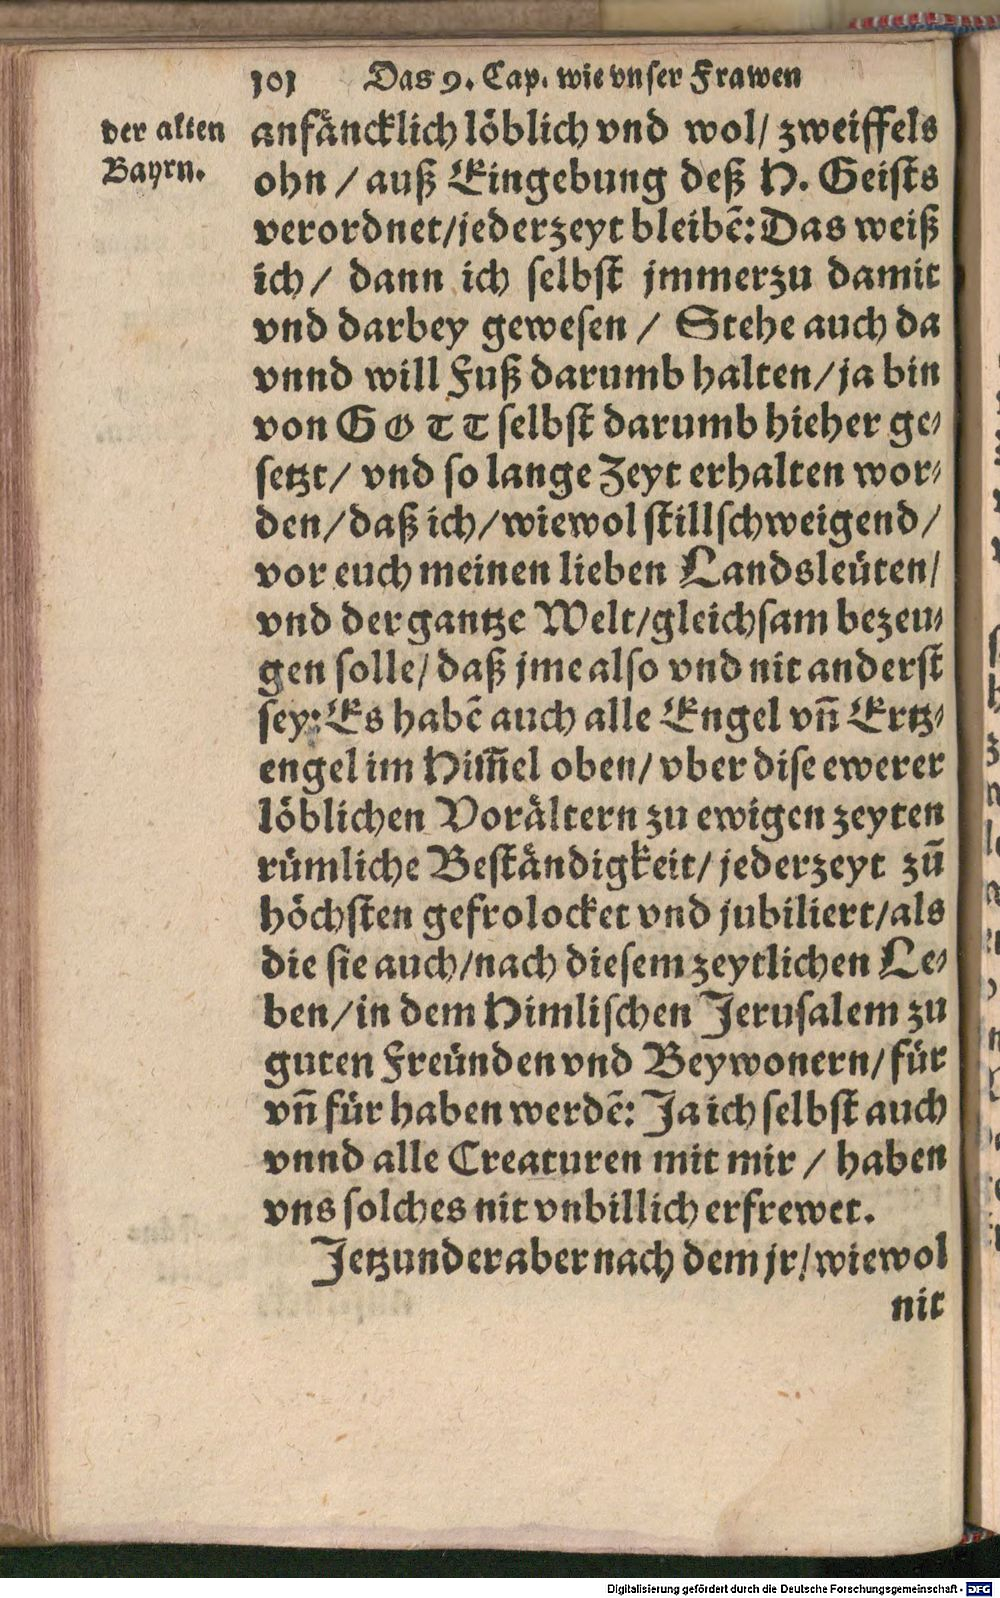 101 Das 9. Cap. wie vnser Frawen
der alten
Bayrn.
anfäncklich löblich vnd wol/ zweiffels
ohn / auß Eingebung deß H. Geists
verordnet/jederzeyt bleibẽ: Das weiß
ich / dann ich selbst jmmerzu damit
vnd darbey gewesen / Stehe auch da
vnnd will Fuß darumb halten/ja bin
von GOTT selbst darumb hieher ge-
setzt/ vnd so lange Zeyt erhalten wor-
den/daß ich/wiewol stillschweigend/
vor euch meinen lieben Landsleüten/
vnd der gantze Welt/gleichsam bezeu-
gen solle/ daß jme also vnd nit anderst
sey: Es habẽ auch alle Engel vñ Ertz-
engel im Him̃el oben/ vber dise ewerer
löblichen Vorältern zu ewigen zeyten
rümliche Beständigkeit/ jederzeyt zũ
höchsten gefrolocket vnd jubiliert/als
die sie auch/nach diesem zeytlichen Le-
ben/in dem Himlischen Jerusalem zu
guten Freünden vnd Beywonern/für
vñ für haben werdẽ: Ja ich selbst auch
vnnd alle Creaturen mit mir / haben
vns solches nit vnbillich erfrewet.
Jetzunder aber nach dem jr/wiewol
nit
Digitalisierung gefördert durch die Deutsche Forschungsgemeinschaft - DFG